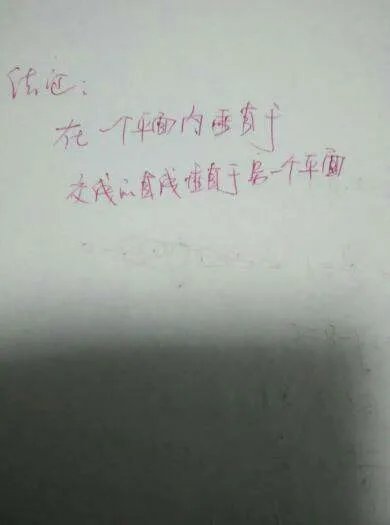 法证:
在一个平面内垂直于
交线的直线垂直于另一个平面